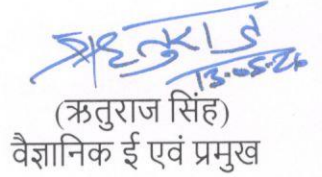 ऋतुराज
13-05-26
(ऋतुराज सिंह)
वैज्ञानिक ई एवं प्रमुख